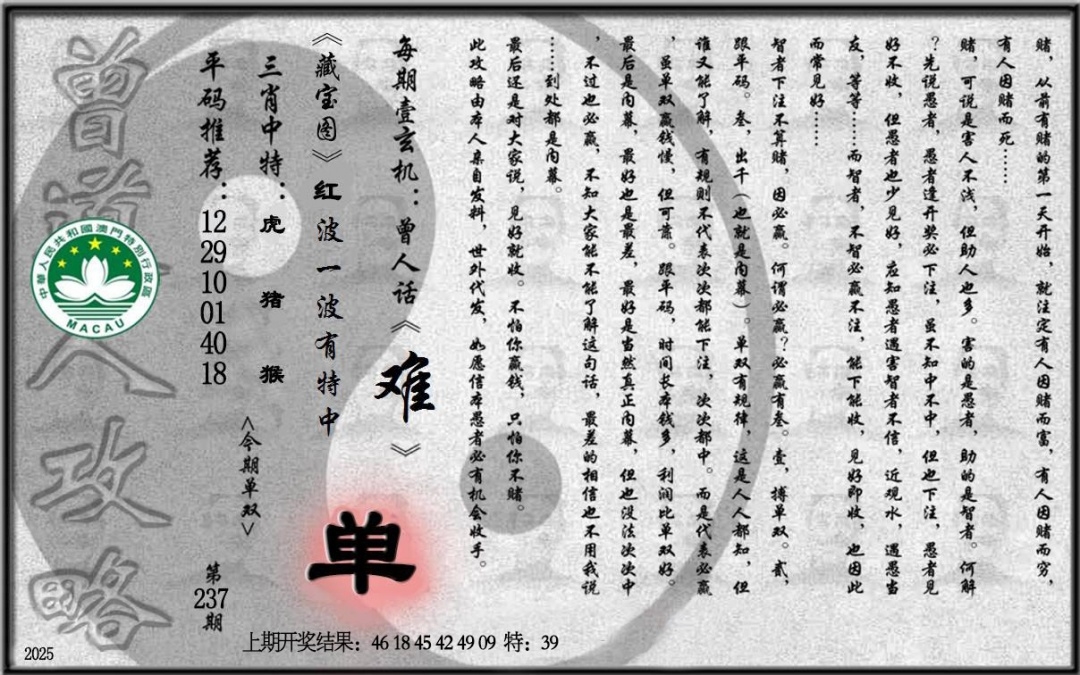 赌，从前有赌的第一天开始，就注定有人因赌而富，有人因赌而穷，
有人因赌而死……
赌，可说是害人不浅，但助人也多。害的是愚者，助的是智者。何解
？先说愚者，愚者逢开奖必下注，虽不知中不中，但也下注，愚者见
好不收，但愚者也少见好，应知愚者遇害智者不信，近观水，遇愚当
友，等等……而智者，不智必赢不注，能下能收，见好即收，也因此
而常见好……
智者下注不算赌，因必赢。何谓必赢？必赢有叁。壹，搏单双。贰，
跟平码。叁，出千（也就是内幕）。单双有规律，这是人人都知，但
谁又能了解，有规则不代表次次都能下注，次次都中。而是代表必赢
，虽单双赢钱慢，但可靠。跟平码，时间长本钱多，利润比单双好。
最后是内幕，最好也是最差，最好是当然真正内幕，但也没法次次中
，不过也必赢，不知大家能不能了解这句话，最差的相信也不用我说
……到处都是内幕。
最后还是对大家说，见好就收。不怕你赢钱，只怕你不赌。
此攻略由本人亲自发料，世外代发，如愿信本愚者必有机会收手。
每期壹玄机：曾人话《难》
《藏宝图》红波一波有特中
单
三肖中特：虎 猪 猴
<今期单双>
平码推荐：12 29 10 01 40 18
第237期
曾道人攻略
中華人民共和國澳門特別行政區
MACAU
上期开奖结果：46 18 45 42 49 09 特：39
2025